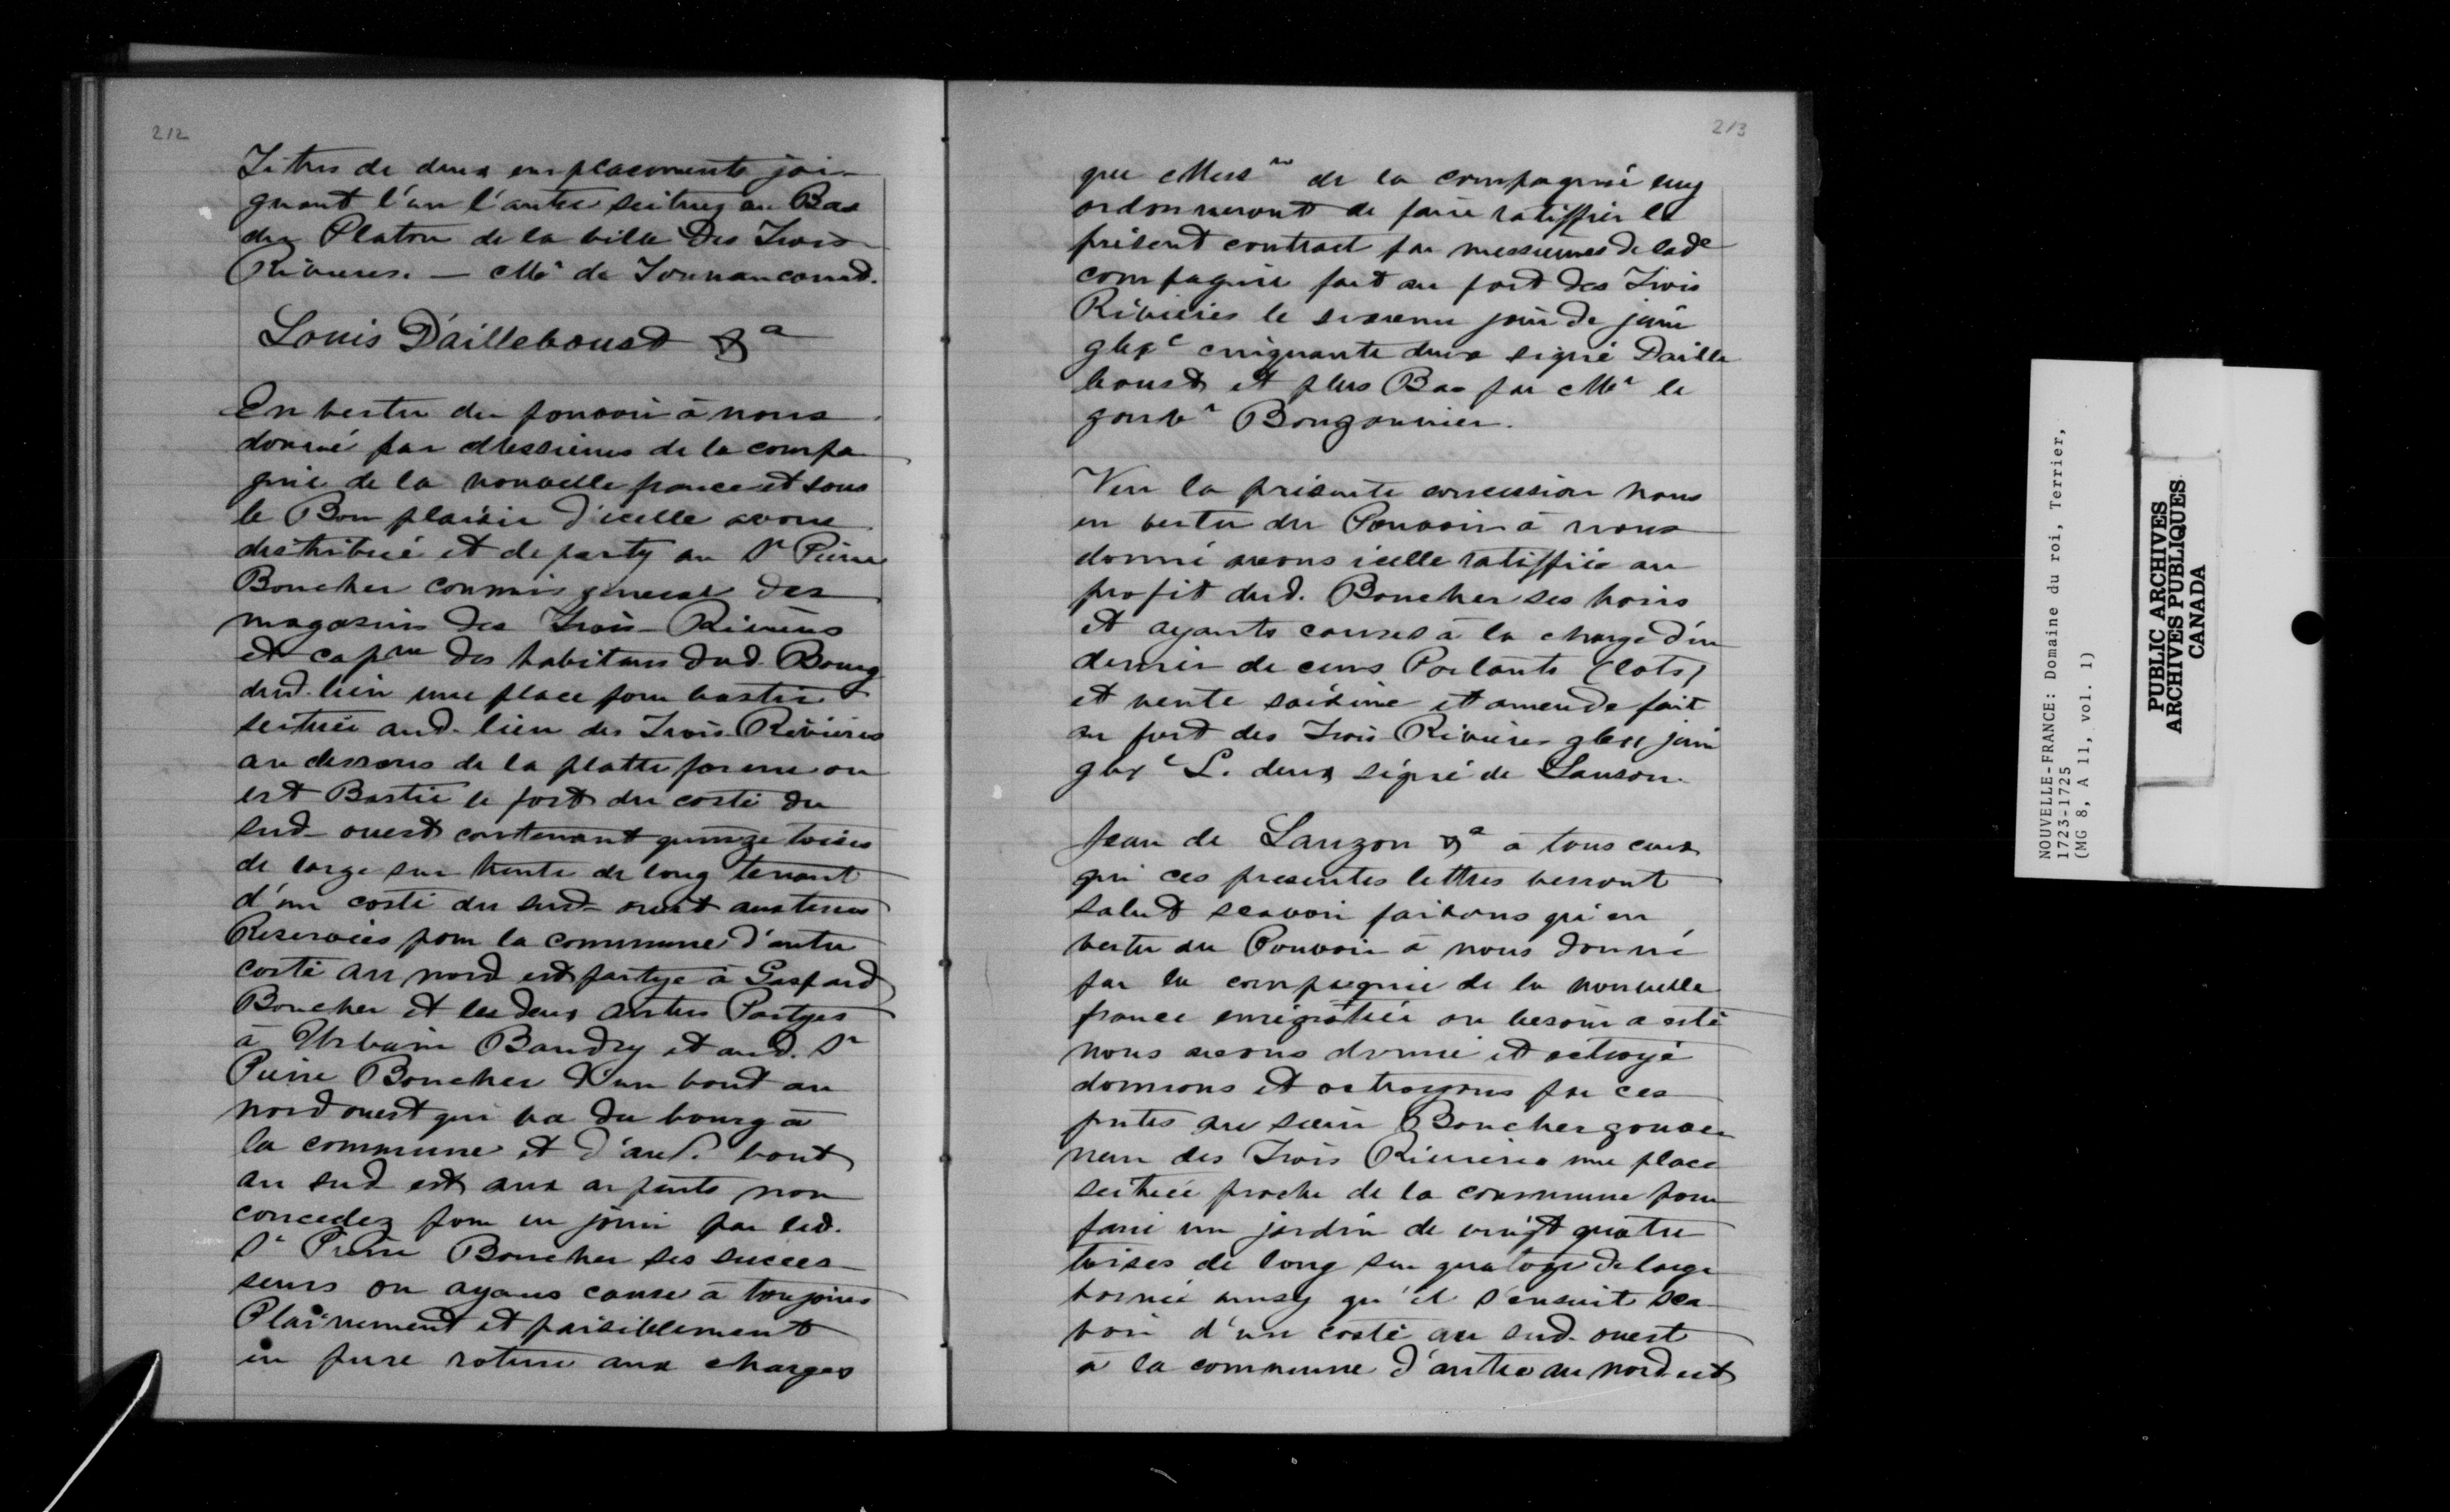 212
Titres de deux emplacements joi-
gnant l'un l'autre scituez au Bas
du Platon de la ville Des Trois
Rivieres. — Mr de Tonnancourt.
Louis D'ailleboust &a
En vertu du pouvoir à nous
donné par Messieurs de la compa
gnie de la nouvelle france et sous
le Bon plaisir d'icelle avons
distribué et departy au Sr Pierre
Boucher commis general des
magasins des Trois-Rivieres
et capne des habitans dud. Bourg
dud. lieu une place pour bastir
scituée aud. lieu des Trois-Rivières
au dessous de la platte forme ou
est Bastie le fort du costé du
sud-ouest contenant quinze toises
de large sur trente de long tenant
d'un costé du sud-ouest aux terres
Reservées pour la commune d'autre
costé au nord est partye à Gaspard
Boucher et les deux autres Partyes
à Urbain Baudry et aud. Sr
Pierre Boucher D'un bout au
nord ouest qui va du bourg à
la commune et d'aut. bout
au sud est aux arpents non
concedez pour en jouir par led.
Sr Pierre Boucher ses succes-
seurs ou ayans cause à toujours
Plainement et paisiblement
en pure roture aux charges
213
que Messrs de la compagnie
ordonneront de faire ratiffier le
présent contract par messieurs de lade
compagnie fait au fort des Trois
Rivières le sixieme jour de juin
gbixc cinquante deux signé Daille
boust et plus Bas par Mr le
gouvr Bougonnier.
Veu la présente concession nous
en vertu du Pouvoir à nous
donné avons icelle ratiffiée au
profit dud. Boucher ses hoirs
et ayants causes à la charge d'un
denier de cens Portants (lots)
et vente saisine et amende fait
au fort des Trois-Rivieres juin
L. deux signé de Lauson.
Jean de Lauzon &a a tous ceux
qui ces presentes lettres verront
salut scavoir faisons qu'en
vertu du Pouvoir à nous donné
par la compagnie de la nouvelle
france ou besoin a esté
nous avons donné et octroyé
donnons et octroyons par ces
pntes au sieur Boucher gouver
neur des Trois Rivieres une place
scituée proche de la commune pour
faire un jardin de vingt quatre
toises de long sur quatorze de large
bornée ainsy qu'il s'ensuit sca-
voir d'un costé au sud-ouest
à la commune d'autre au nord est
NOUVELLE-FRANCE: Domaine du roi, Terrier,
1723-1725
(MG 8, A 11, vol. 1)
PUBLIC ARCHIVES
ARCHIVES PUBLIQUES
CANADA